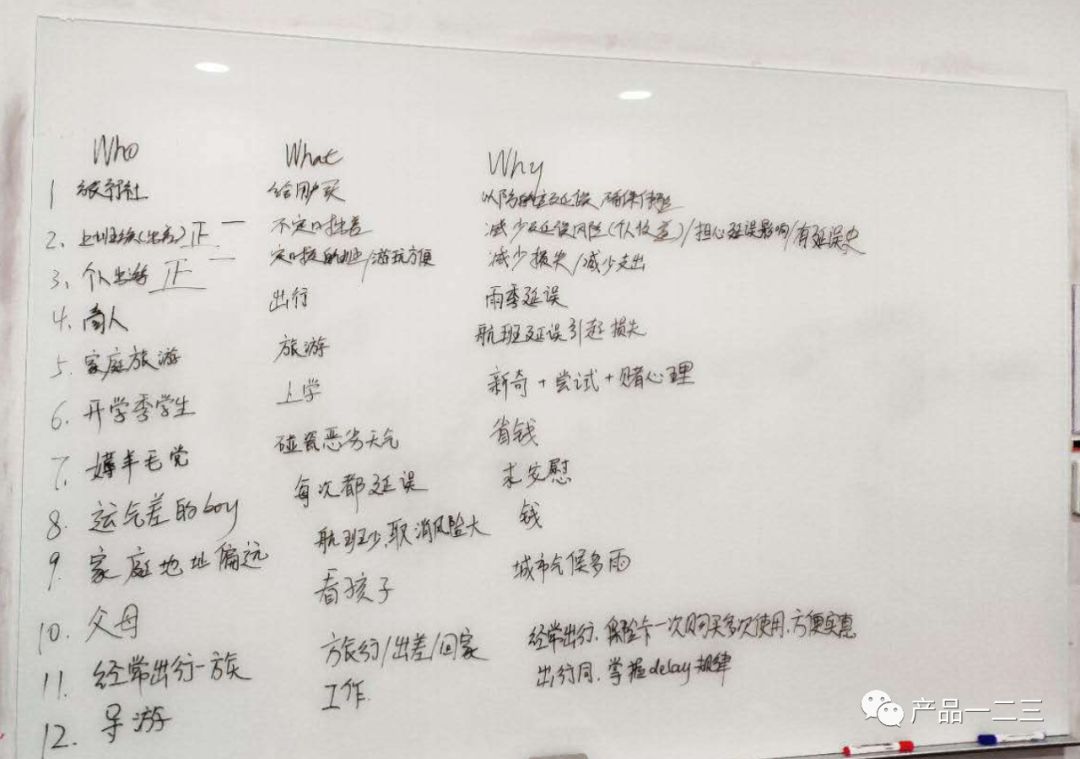 Who What Why
1 旅行社 给用户买 以防
2. 上班族(出差) 正一 不定时出差 减少延误风险 / 担心延误影响 / 有延误史
3. 个人出游 正二 / 游玩方便 减少损失 / 减少支出
4. 商人 出行 雨季延误
5. 家庭旅游 旅游 航班延误引起损失
6. 开学季学生 上学 新奇 + 尝试 + 赌心理
7. 薅羊毛党 碰瓷恶劣天气 省钱
8. 运气差的boy 每次都延误 求安慰
9. 家庭地址偏远 航班少,取消风险大 钱
10. 父母 看孩子 城市气候多雨
11. 经常出行一族 旅行/出差/回家 经常出行,保险卡一次购买多次使用,方便实惠
12. 导游 工作 出行同,掌握delay规律
产品一二三